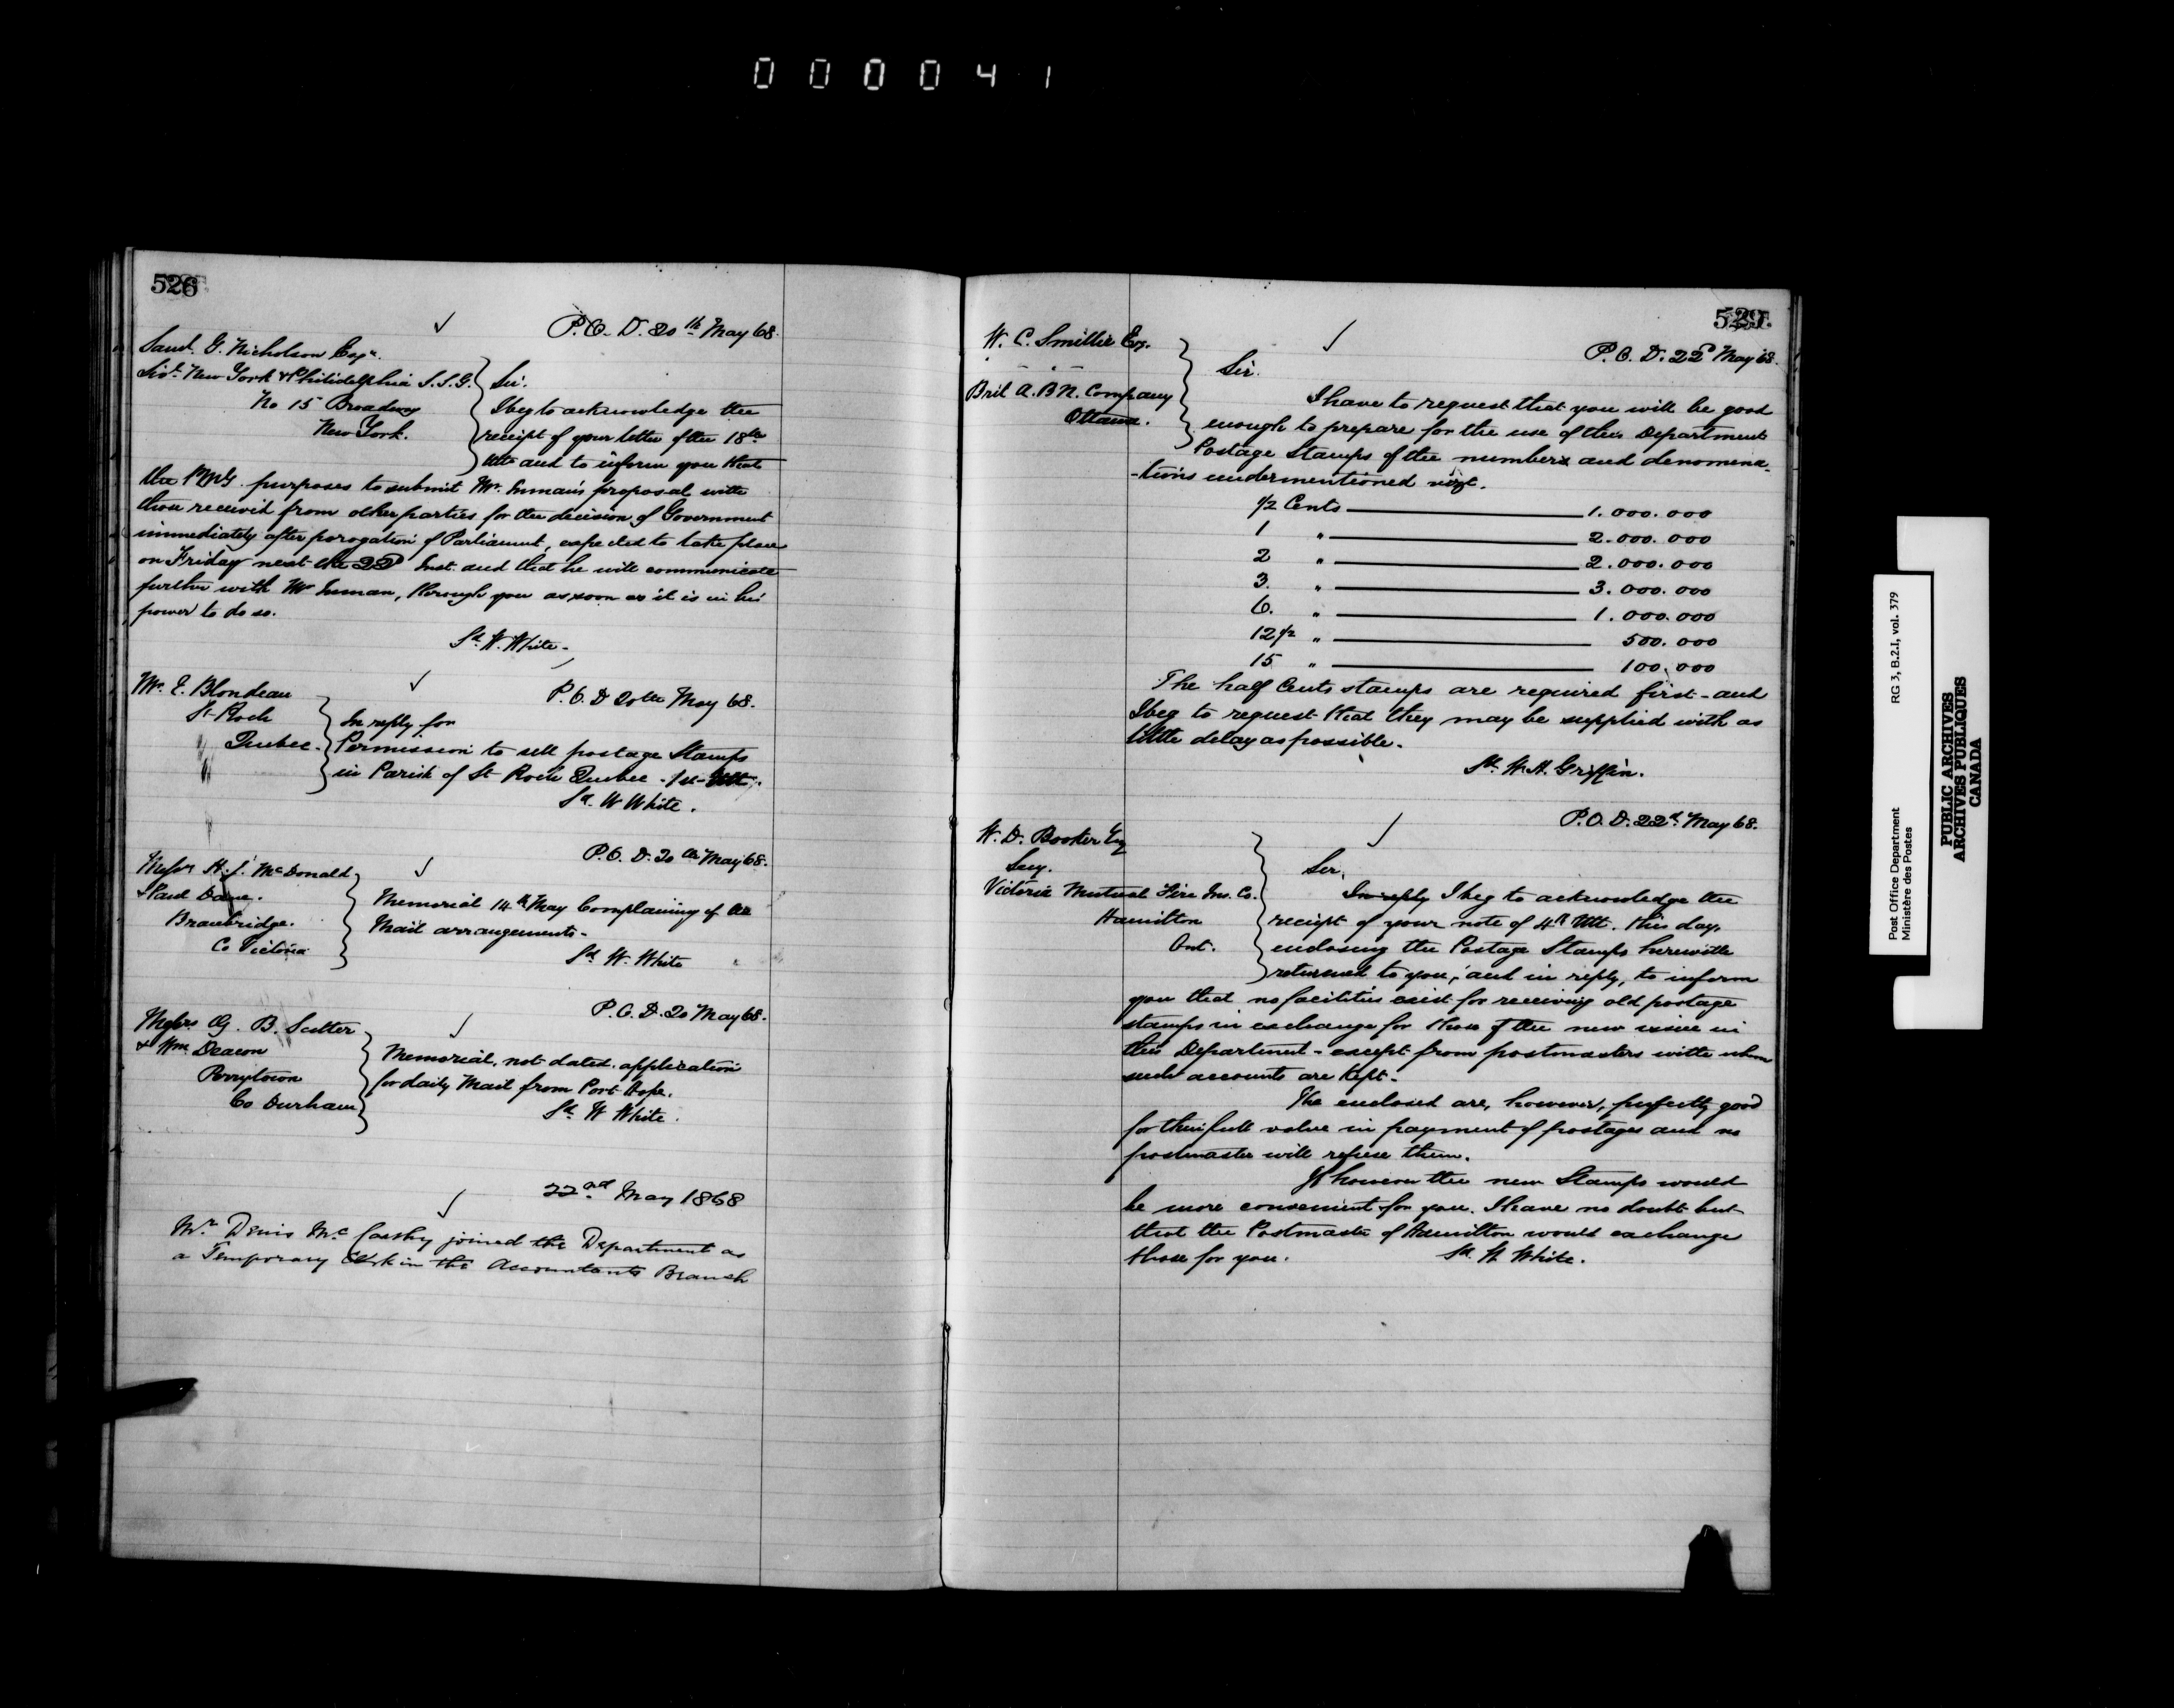 000041
526
P.O.D. 20th May 68.
Saml. G. Nicholson Esqr.
Livl. New York & Philidelphia S.S.G.
No 15 Broadway
New York.
Sir.
I beg to acknowledge the
receipt of your letter of the 18th
Ulto and to inform you that
the PMG. purposes to submit Mr. Inman's proposal with
those received from other parties for the decision of Government
immediately after porogation of Parliament, expected to take place
on Friday next the 22d Inst. and that he will communicate
further with Mr Inman, through you as soon as it is in his
power to do so.
Sd. W. White-
P.O.D 20th May 68.
Mr. E. Blondeau
St Roch
Quebec.
In reply for
Permission to sell postage Stamps
in Parish of St Roch Quebec - 1st Ult.
Sd. W White.
P.O.D. 20th May 68.
Messrs H. J. McDonald
& Paul Dane.
Bracebridge.
Co Victoria
Memorial 14th May Complaining of
Mail arrangements-
Sd W. White
P.O.D. 20 May 68.
Messrs G. B. Salter
& Wm Deacon
Perrytown
Co Durham
Memorial, not dated. application
for daily Mail from Port Hope.
Sd. W White.
22nd May 1868
Mr. Denis Mc Carthy joined the Department as
a Temporary Clerk in the Accountants Branch
529.
P.O.D. 22d May 68.
W. C. Smillie Esq.
Brit A. B N. Company
Ottawa.
Sir.
I have to request that you will be good
enough to prepare for the use of this Department
Postage Stamps of the numbers and denomena-
-tions undermentioned vizt.
1/2 Cents 1.000.000
1 " 2.000.000
2 " 2.000.000
3. " 3.000.000
6. " 1.000.000
12 1/2 " 500.000
15 " 100.000
The half Cents stamps are required first - and
I beg to request that they may be supplied with as
little delay as possible.
Sd. W. H. Griffin.
P.O.D. 22d. May 68.
W. D. Booker Esq
Secy.
Victoria Mutual Fire Ins. Co.
Hamilton
Ont.
Sir,
In reply I beg to acknowledge the
receipt of your note of 4th Ult. this day.
enclosing the Postage Stamps herewith
returned to you; and in reply, to inform
you that no facilities exist for receiving old postage
stamps in exchange for those of the new issue in
this Department - except from postmasters with whom
such accounts are kept-
The enclosed are, however, perfectly good
for their full value in payment of postages and no
postmaster will refuse them.
If however the new Stamps would
be more convenient for you. I have no doubt but
that the Postmaster of Hamilton would exchange
those for you.
Sd. W. White.
Post Office Department
Ministère des Postes
RG 3, B.2.1, vol. 379
PUBLIC ARCHIVES
ARCHIVES PUBLIQUES
CANADA